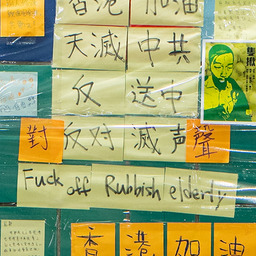 香港 加油
天滅 中共
反 送中
對反对滅声聲
Fuck off Rubbish elderly
香港加油